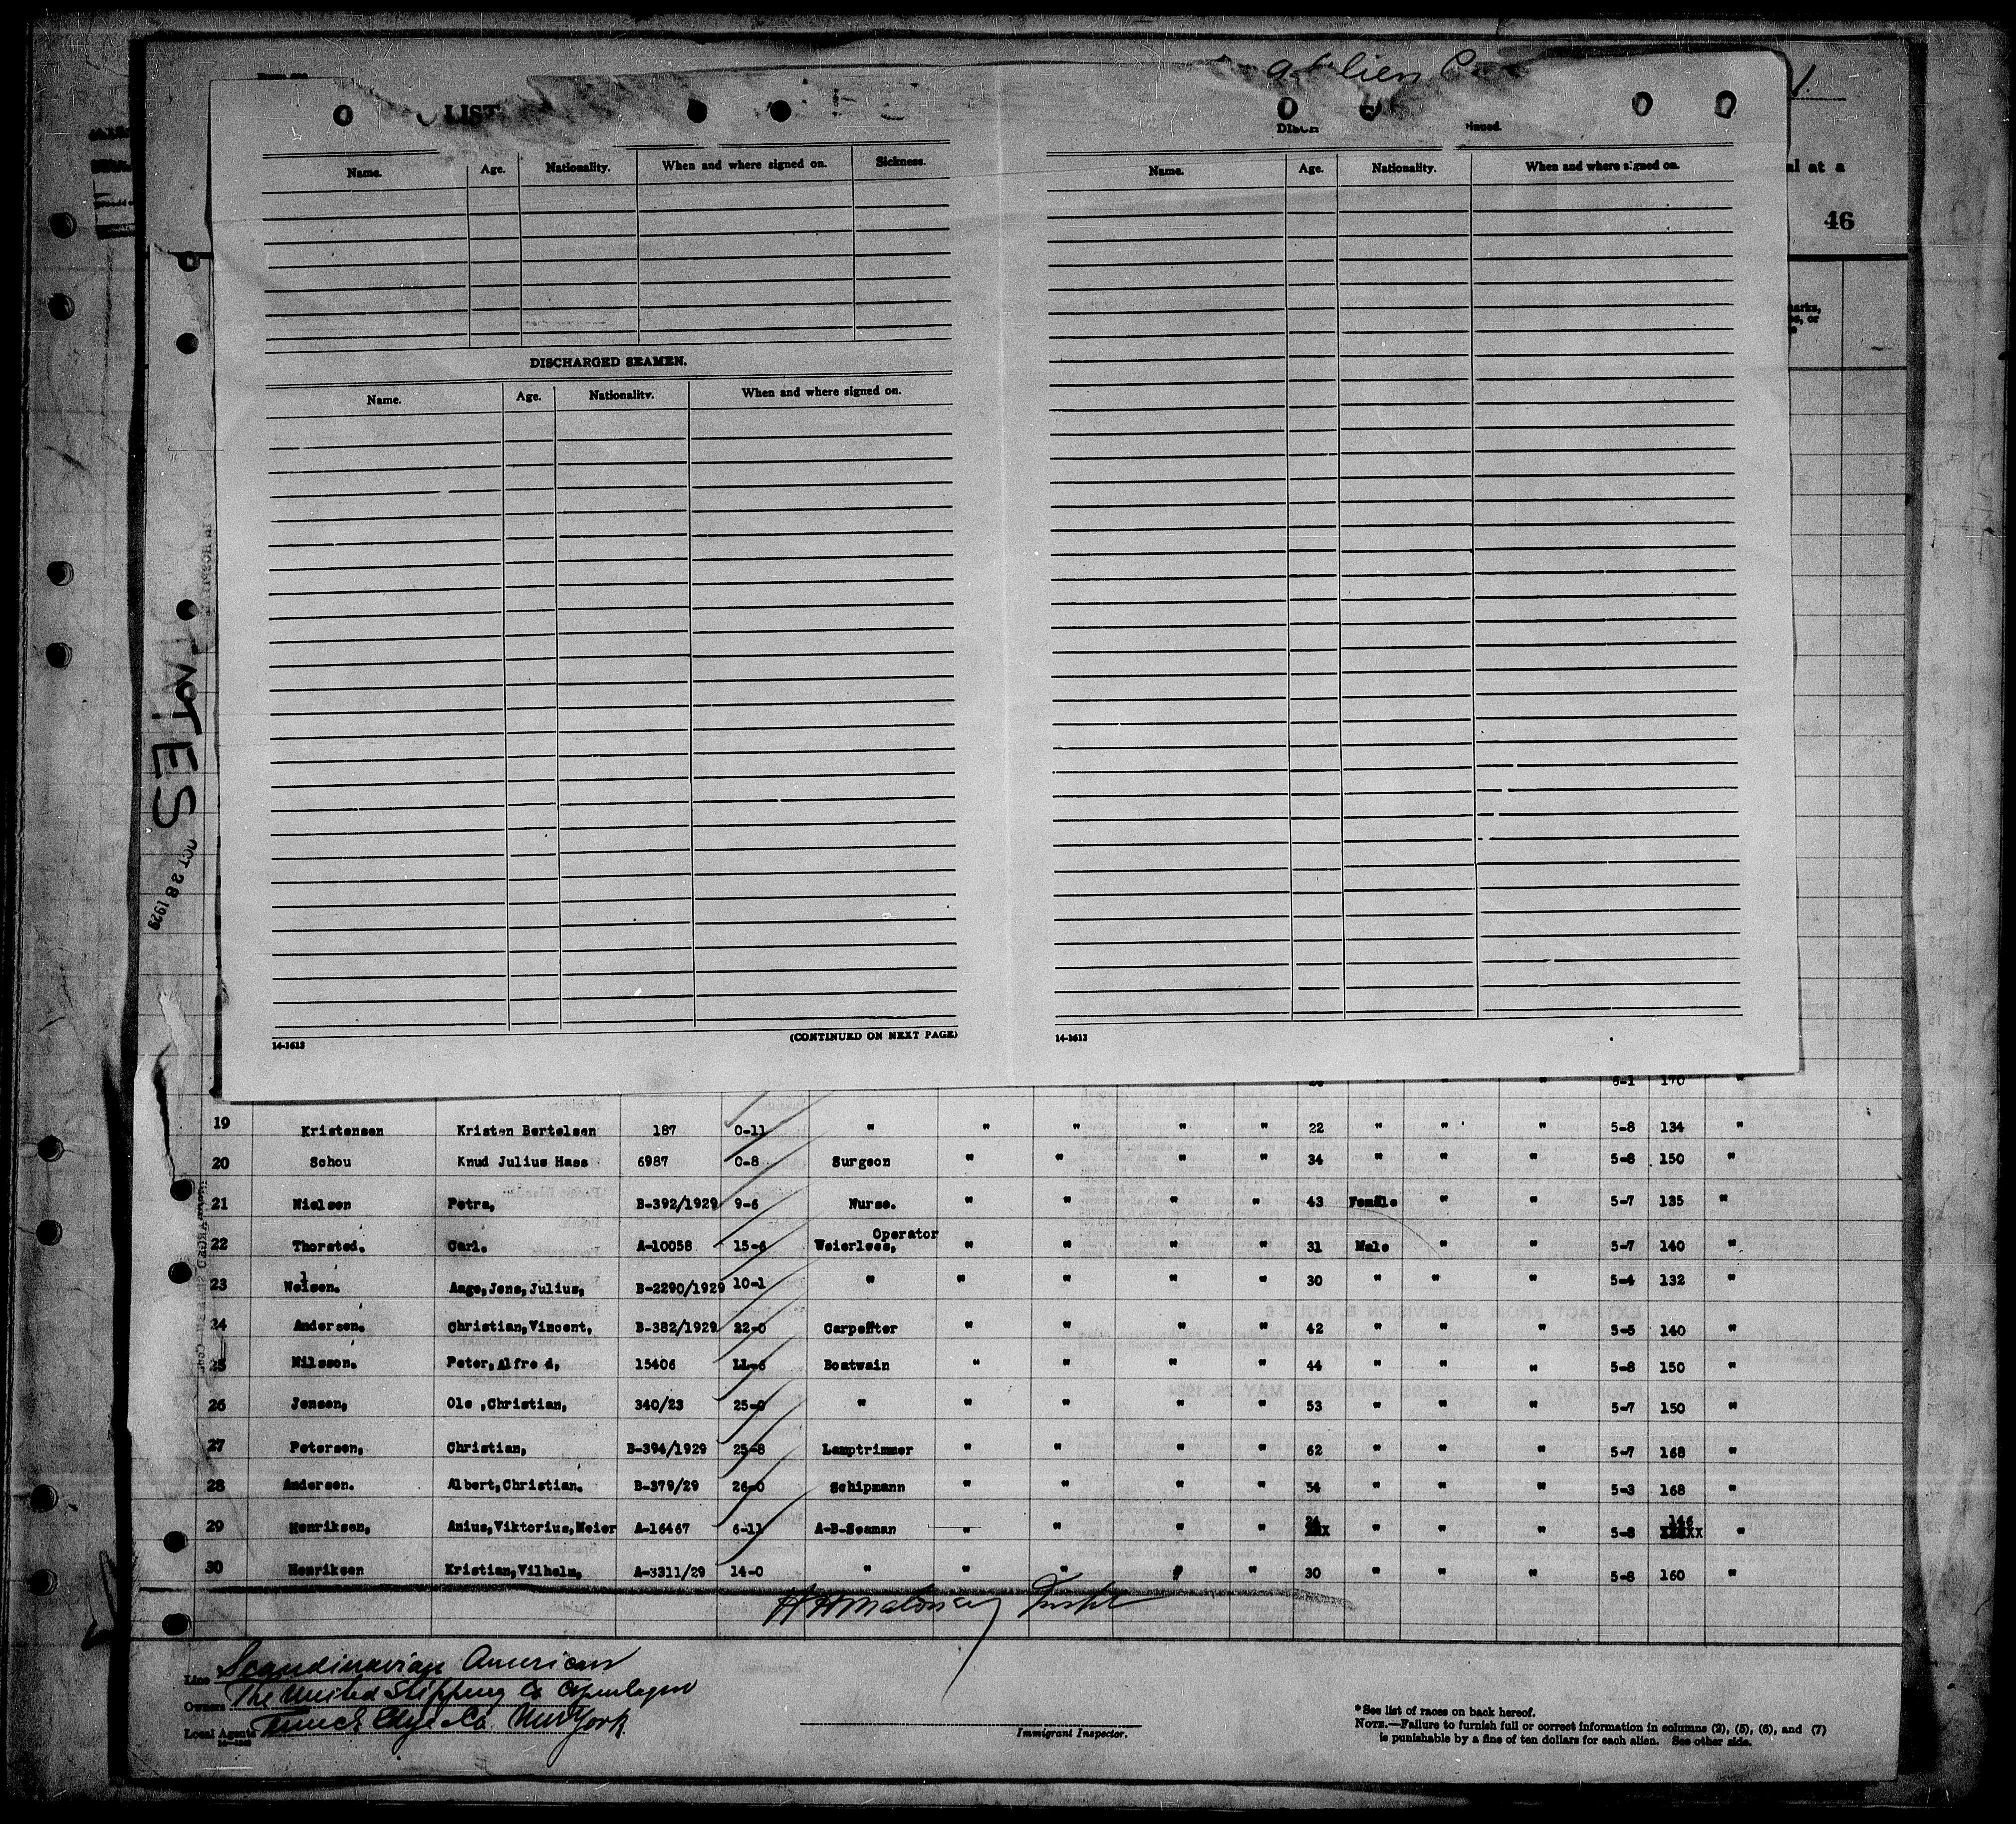 a lien
LIST
Name. Age. Nationality. When and where signed on. Sickness.
DISCHARGED SEAMEN.
Name. Age. Nationality. When and where signed on.
(CONTINUED ON NEXT PAGE)
14-1613
DISCH tinued.
Name. Age. Nationality. When and where signed on.
14-1613
al at a
46
arks,
es, or
OCT 28 1929
6-1 170 "
19 Kristensen Kristen Bertelsen 187 0-11 " " " " " 22 " " " 5-8 134 "
20 Schou Knud Julius Hass 6987 0-8 Surgeon " " " " 34 " " " 5-8 150 "
21 Nielsen Petra, B-392/1929 9-6 Nurse. " " " " 43 Female " " 5-7 135 "
Operator
22 Thorsted. Carl. A-10058 15-6 Weierless, " " " " 31 Male " " 5-7 140 "
23 Nelsen. Aage,Jens,Julius, B-2290/1929 10-1 " " " " " 30 " " " 5-4 132 "
24 Andersen. Christian,Vincent, B-382/1929 22-0 Carpenter " " " " 42 " " " 5-6 140 "
25 Nilsson. Peter,Alfre d, 15406 11-6 Boatwain " " " " 44 " " " 5-8 150 "
26 Jensen, Ole ,Christian, 340/23 25-0 " " " " " 53 " " " 5-7 150 "
27 Petersen, Christian, B-394/1929 25-8 Lamptrimmer " " " " 62 " " " 5-7 168 "
28 Andersen. Albert,Christian. B-379/29 26-0 Schipmann " " " " 54 " " " 5-3 168 "
29 Henriksen, Anius,Viktorius,Meier A-16467 6-11 A-B-Seaman " " " " 24 XXX " " " 5-8 146 XXXXX "
30 Henriksen Kristian,Vilhelm, A-3311/29 14-0 " " " " " 30 " " " 5-8 160 "
Line Scandinavian American
Owners The United Shipping Co Copenhagen
Local Agents Funch Edye & Co New York
Immigrant Inspector.
* See list of races on back hereof.
NOTE.—Failure to furnish full or correct information in columns (2), (5), (6), and (7)
is punishable by a fine of ten dollars for each alien. See other side.